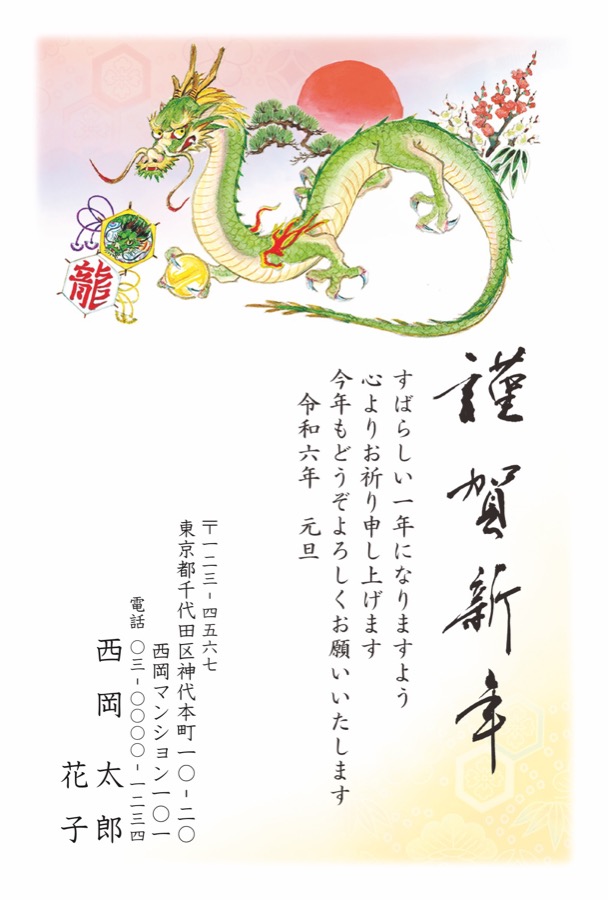 龍
謹賀新年
すばらしい一年になりますよう
心よりお祈り申し上げます
今年もどうぞよろしくお願いいたします
令和六年　元旦
〒一二三-四五六七
東京都千代田区神代本町一〇-二〇
西岡マンション一〇一
電話　〇三-〇〇〇〇-一二三四
西岡　太郎
花子